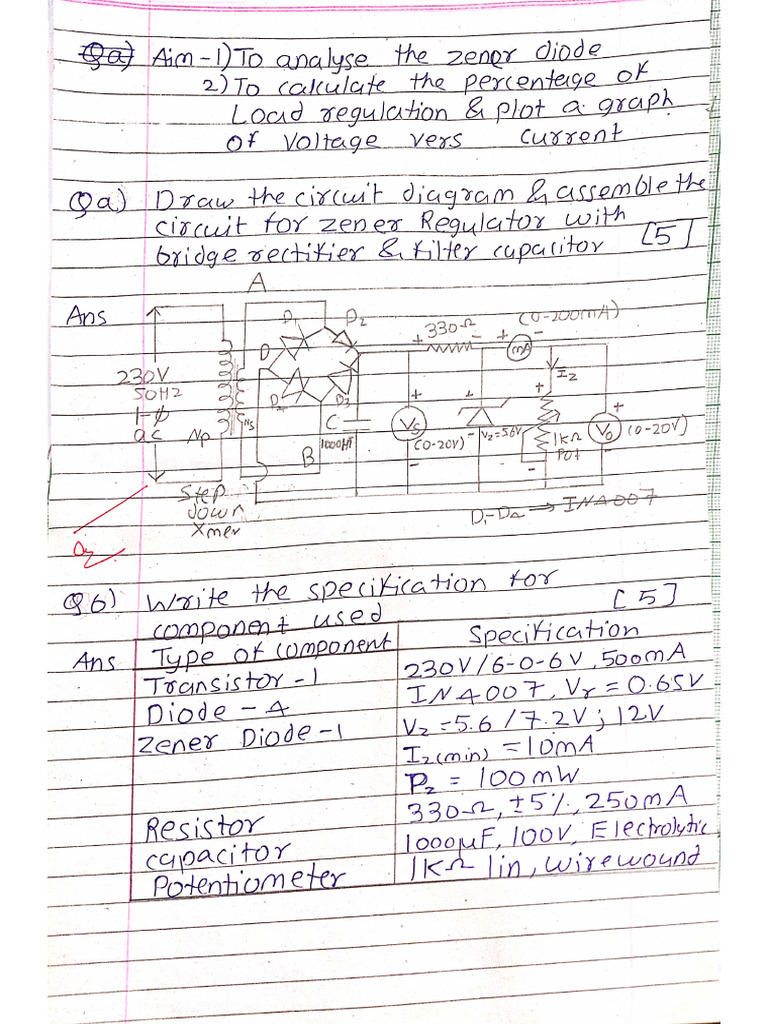 Qa) Aim - 1) To analyse the zener diode
2) To calculate the percentage of
Load regulation & plot a graph
of voltage vers current
Qa) Draw the circuit diagram & assemble the
circuit for zener Regulator with
bridge rectifier & filter capacitor [5]
Ans
A
D1 D2
330Ω
+ -
+ -
(0-200mA)
mA
230V
50Hz
1-ϕ
ac
Np
Ns
D
D4 D3
C
1000µf
B
+
Vs
(0-20V)
-
Vz=5.6V
Iz
+
1KΩ
Pot
-
+
Vo
(0-20V)
-
Step
down
Xmer
D1-D4 → IN4007
Qb) Write the specification for
component used [5]
Ans Type of component Specification
Transistor - 1 230V/6-0-6V, 500mA
Diode - 4 IN4007, Vr = 0.65V
Zener Diode - 1 Vz = 5.6/7.2V; 12V
Iz(min) = 10mA
Pz = 100mW
Resistor 330Ω, ±5%, 250mA
capacitor 1000µF, 100V, Electrolytic
Potentiometer 1KΩ lin, wirewound